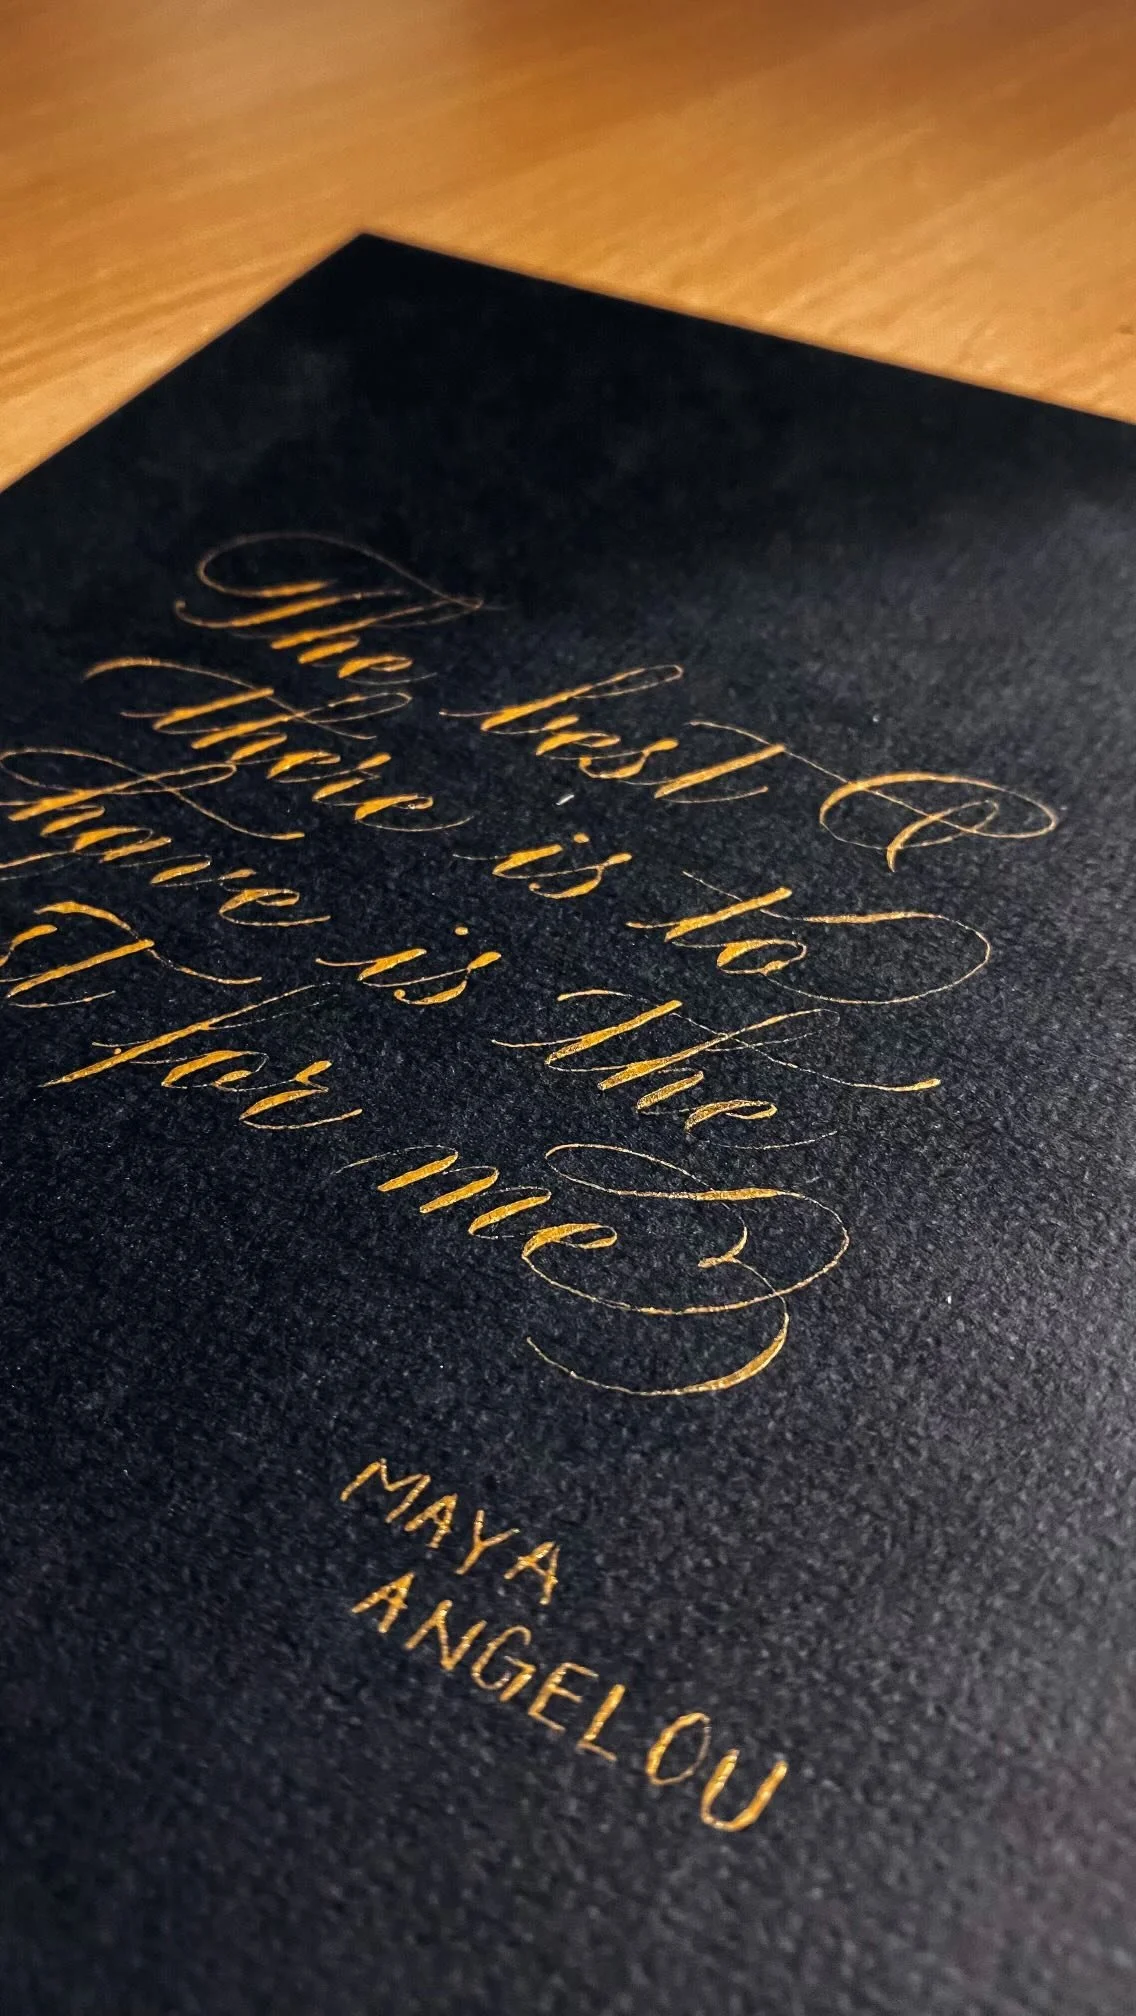 The best
there is to
have is the
for me
MAYA
ANGELOU